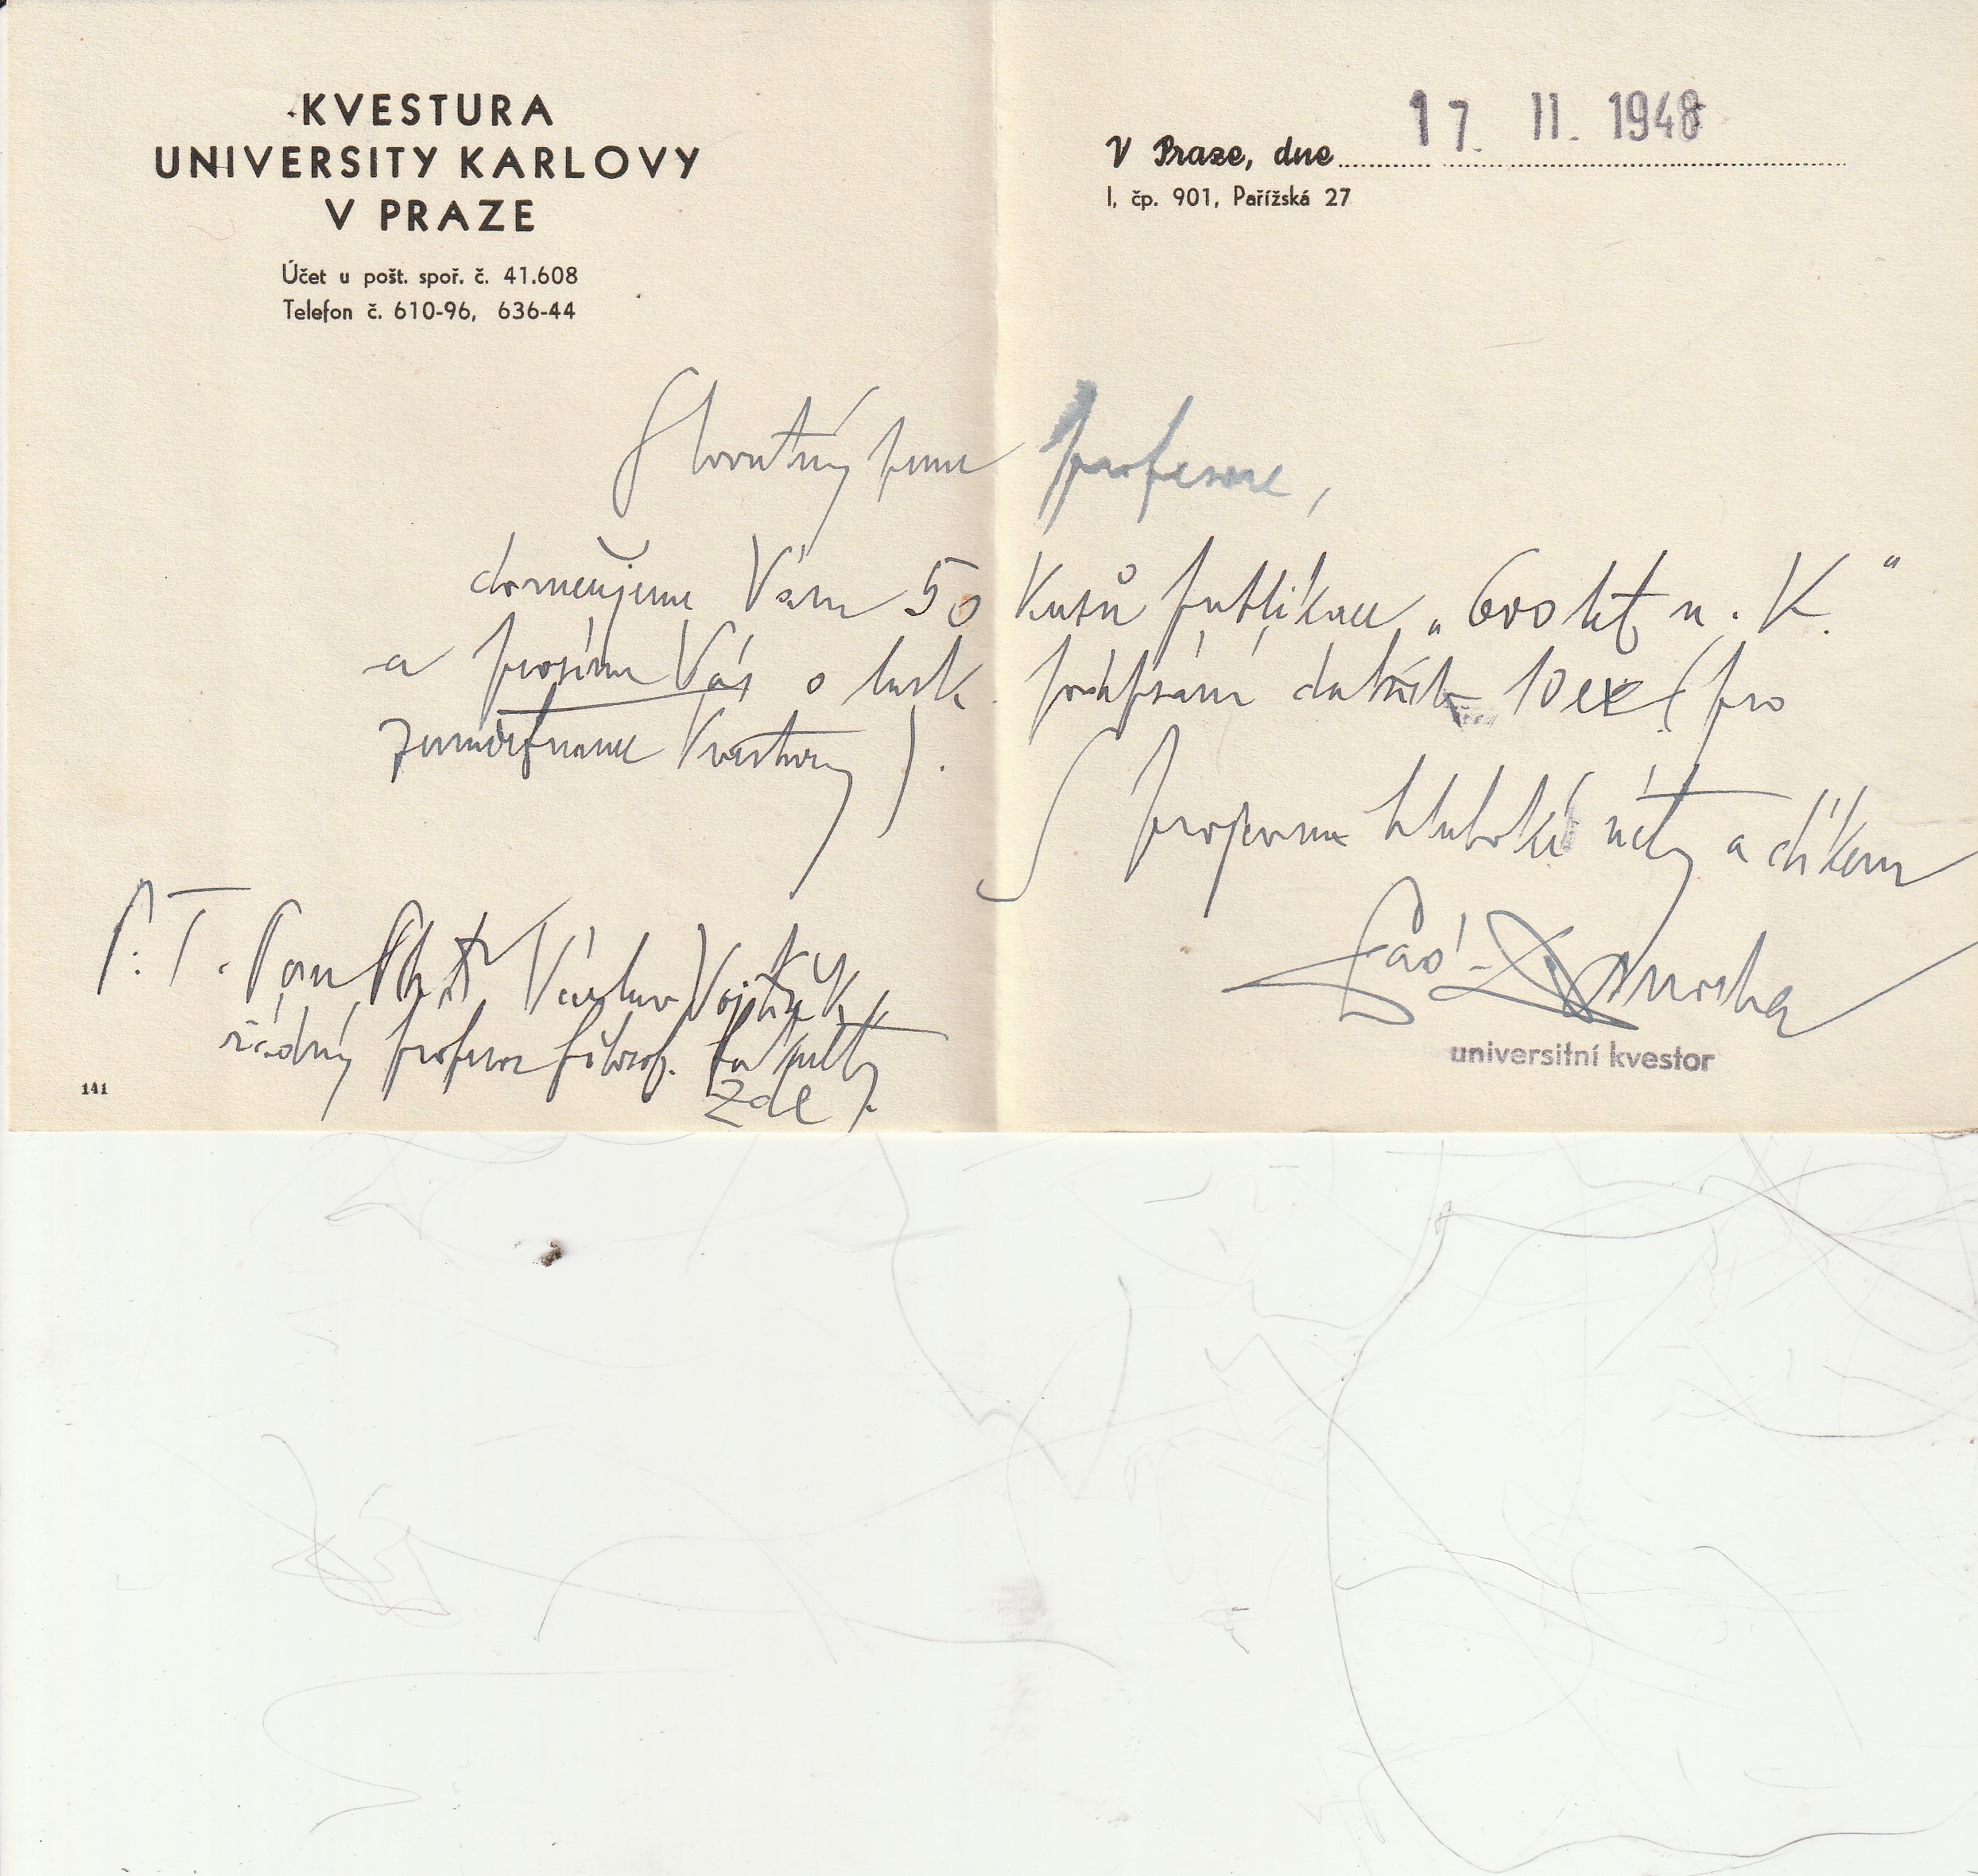 KVESTURA
UNIVERSITY KARLOVY
V PRAZE
Účet u pošt. spoř. č. 41.608
Telefon č. 610-96, 636-44
V Praze, dne 17. II. 1948
I, čp. 901, Pařížská 27
Slovutný pane profesore,
doručujeme Vám 50 kusů publikace „600 let u. K."
a prosíme Vás o lask. podepsání 10 ex (pro
zaměstnance kvestury).
S projevem hluboké úcty a díkem
universitní kvestor
P. T. Pan Václav Vojtíšek
řádný profesor filosof. fakulty
Zde).
141